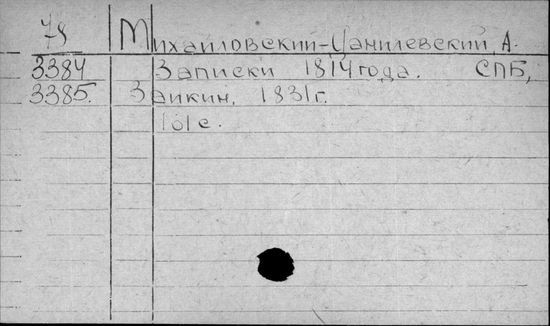 78 Михайловский-Данилевский, А.
3384 Записки 1814 года. СПБ,
3385. Заикин, 1831г.
101с.